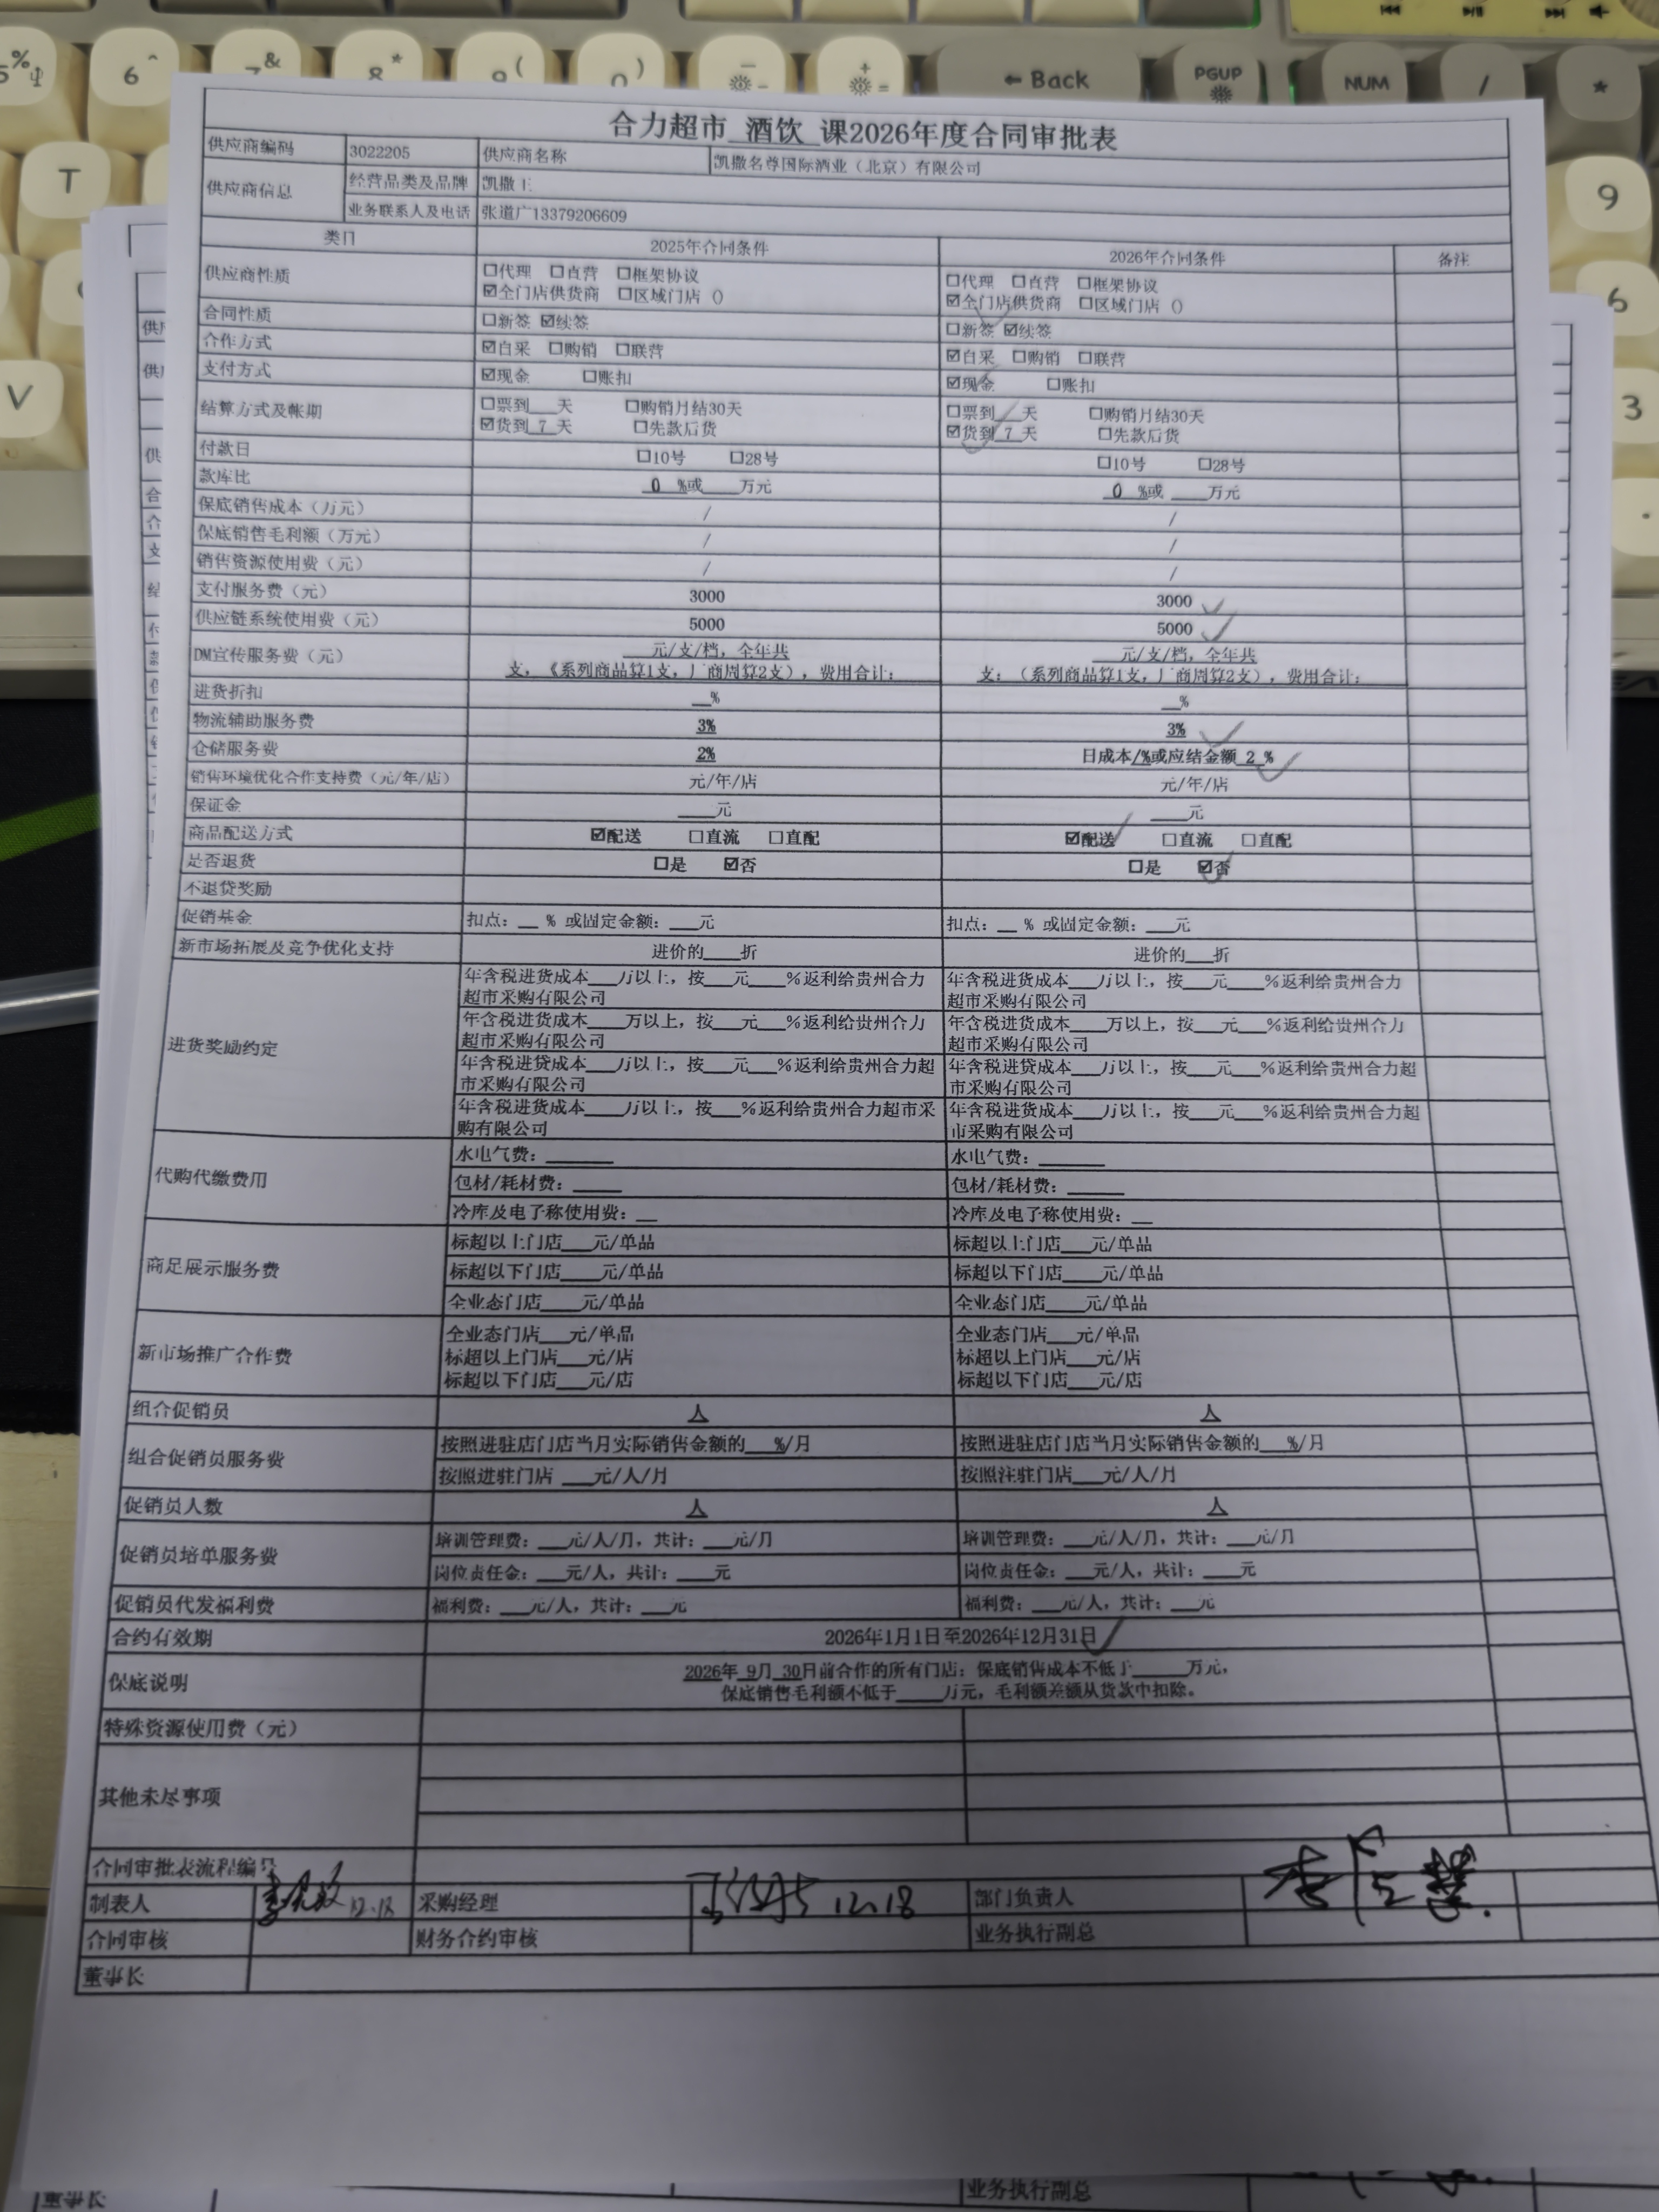 5% 6^ 7& 8* 9( 0) — - + = ← Back PGUP NUM / *
T
V
9
6
3
合力超市 酒饮 课2026年度合同审批表
供应商编码 3022205 供应商名称 凯撒名尊国际酒业（北京）有限公司
供应商信息 经营品类及品牌 凯撒王
业务联系人及电话 张道广13379206609
类目 2025年合同条件 2026年合同条件 备注
供应商性质 ☐代理 ☐直营 ☐框架协议 ☐代理 ☐直营 ☐框架协议
☑全门店供货商 ☐区域门店 () ☑全门店供货商 ☐区域门店 ()
合同性质 ☐新签 ☑续签 ☐新签 ☑续签
合作方式 ☑自采 ☐购销 ☐联营 ☑自采 ☐购销 ☐联营
支付方式 ☑现金 ☐账扣 ☑现金 ☐账扣
结算方式及帐期 ☐票到___天 ☐购销月结30天 ☐票到___天 ☐购销月结30天
☑货到_7_天 ☐先款后货 ☑货到_7_天 ☐先款后货
付款日 ☐10号 ☐28号 ☐10号 ☐28号
款库比 _0_%或___万元 _0_%或___万元
保底销售成本（万元） / /
保底销售毛利额（万元） / /
销售资源使用费（元） / /
支付服务费（元） 3000 3000
供应链系统使用费（元） 5000 5000
DM宣传服务费（元） ___元/支/档，全年共 ___元/支/档，全年共
支，（系列商品算1支，厂商周算2支），费用合计： 支：（系列商品算1支，厂商周算2支），费用合计：
进货折扣 __% __%
物流辅助服务费 3% 3%
仓储服务费 2% 日成本/%或应结金额_2_%
销售环境优化合作支持费（元/年/店） 元/年/店 元/年/店
保证金 ___元 ___元
商品配送方式 ☑配送 ☐直流 ☐直配 ☑配送 ☐直流 ☐直配
是否退货 ☐是 ☑否 ☐是 ☑否
不退货奖励
促销基金 扣点：__ % 或固定金额：___元 扣点：__ % 或固定金额：___元
新市场拓展及竞争优化支持 进价的___折 进价的___折
进货奖励约定 年含税进货成本___万以上，按___元___%返利给贵州合力 年含税进货成本___万以上，按___元___%返利给贵州合力
超市采购有限公司 超市采购有限公司
年含税进货成本___万以上，按___元___%返利给贵州合力 年含税进货成本___万以上，按___元___%返利给贵州合力
超市采购有限公司 超市采购有限公司
年含税进货成本___万以上，按___元___%返利给贵州合力超 年含税进货成本___万以上，按___元___%返利给贵州合力超
市采购有限公司 市采购有限公司
年含税进货成本___万以上，按___%返利给贵州合力超市采 年含税进货成本___万以上，按___元___%返利给贵州合力超
购有限公司 市采购有限公司
代购代缴费用 水电气费：______ 水电气费：______
包材/耗材费：_____ 包材/耗材费：_____
冷库及电子称使用费：__ 冷库及电子称使用费：__
商品展示服务费 标超以上门店___元/单品 标超以上门店___元/单品
标超以下门店____元/单品 标超以下门店____元/单品
全业态门店____元/单品 全业态门店____元/单品
新市场推广合作费 全业态门店___元/单品 全业态门店___元/单品
标超以上门店___元/店 标超以上门店___元/店
标超以下门店___元/店 标超以下门店___元/店
组合促销员 人 人
组合促销员服务费 按照进驻店门店当月实际销售金额的___%/月 按照进驻店门店当月实际销售金额的___%/月
按照进驻门店 ___元/人/月 按照注驻门店___元/人/月
促销员人数 人 人
促销员培单服务费 培训管理费：___元/人/月，共计：___元/月 培训管理费：___元/人/月，共计：___元/月
岗位责任金：___元/人，共计：____元 岗位责任金：___元/人，共计：____元
促销员代发福利费 福利费：___元/人，共计：___元 福利费：___元/人，共计：___元
合约有效期 2026年1月1日至2026年12月31日
保底说明 2026年 9月 30日前合作的所有门店：保底销售成本不低于______万元，
保底销售毛利额不低于_____万元，毛利额差额从货款中扣除。
特殊资源使用费（元）
其他未尽事项
合同审批表流程编号
制表人 12.18 采购经理 12.18 部门负责人
合同审核 财务合约审核 业务执行副总
董事长
董事长 业务执行副总